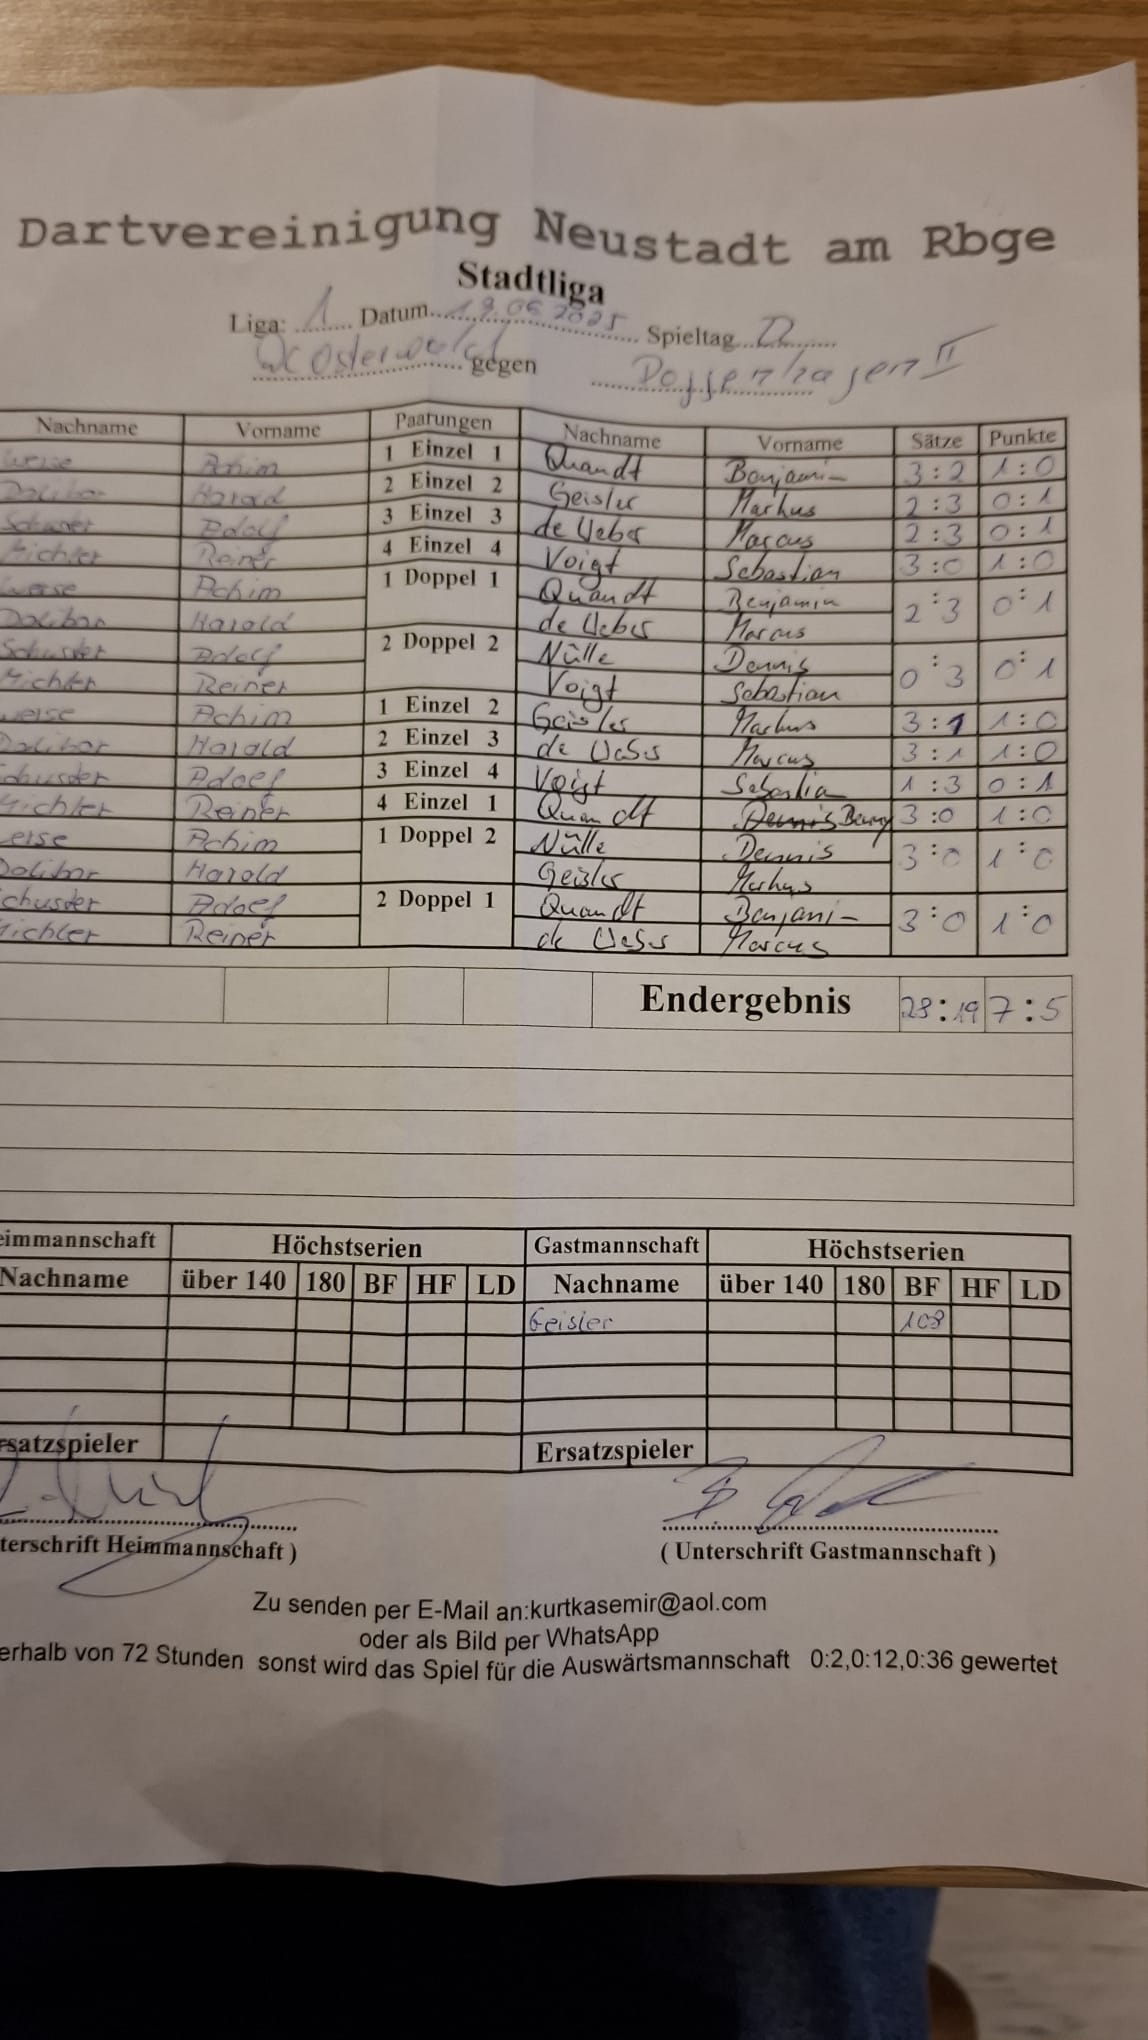 Dartvereinigung Neustadt am Rbge
Stadtliga
Liga: 1 Datum 19.06.2025 Spieltag 22
Osterwald gegen II
Nachname Vorname Paarungen Nachname Vorname Sätze Punkte
weise Achim 1 Einzel 1 Quandt Benjamin 3:2 1:0
Dalibor Harald 2 Einzel 2 Geisler Markus 2:3 0:1
Schuster Adolf 3 Einzel 3 de Weber Marcus 2:3 0:1
Michler Reiner 4 Einzel 4 Voigt Sebastian 3:0 1:0
weise Achim 1 Doppel 1 Quandt Benjamin 2:3 0:1
Dalibor Harald de Weber Marcus
Schuster Adolf 2 Doppel 2 Nülle Dennis 0:3 0:1
Michler Reiner Voigt Sebastian
weise Achim 1 Einzel 2 Geisler Markus 3:1 1:0
Dalibor Harald 2 Einzel 3 de Weber Marcus 3:1 1:0
chuster Adolf 3 Einzel 4 Voigt Sebastian 1:3 0:1
Michler Reiner 4 Einzel 1 Quandt Dennis Benny 3:0 1:0
eise Achim 1 Doppel 2 Nülle Dennis 3:0 1:0
Dalibor Harald Geisler Markus
chuster Adolf 2 Doppel 1 Quandt Benjamin 3:0 1:0
Michler Reiner de Weber Marcus
Endergebnis 28:19 7:5
eimmannschaft Höchstserien Gastmannschaft Höchstserien
Nachname über 140 180 BF HF LD Nachname über 140 180 BF HF LD
Geisler 108
rsatzspieler Ersatzspieler
terschrift Heimmannschaft ) ( Unterschrift Gastmannschaft )
Zu senden per E-Mail an:kurtkasemir@aol.com
oder als Bild per WhatsApp
erhalb von 72 Stunden sonst wird das Spiel für die Auswärtsmannschaft 0:2,0:12,0:36 gewertet